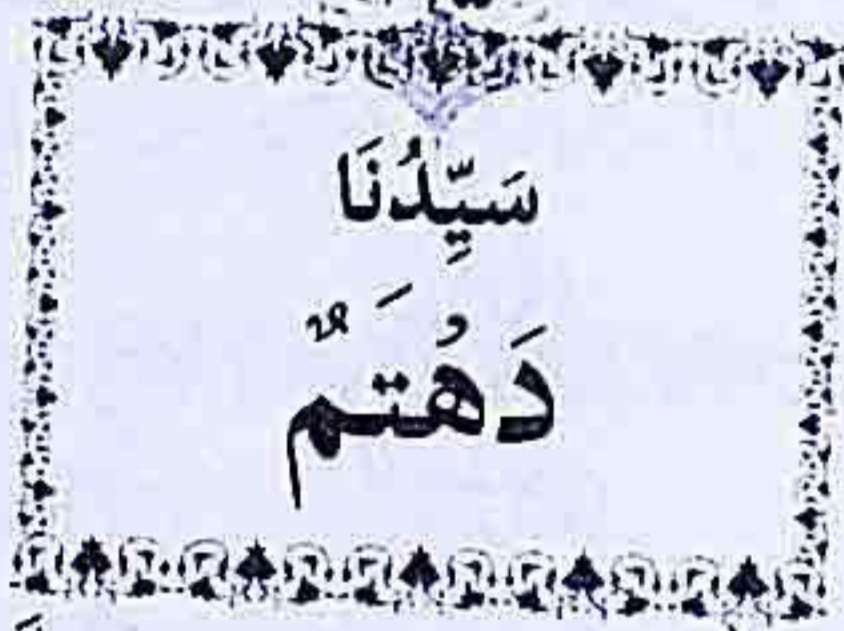 سَيِّدُنَا
دَهُتَمٌ